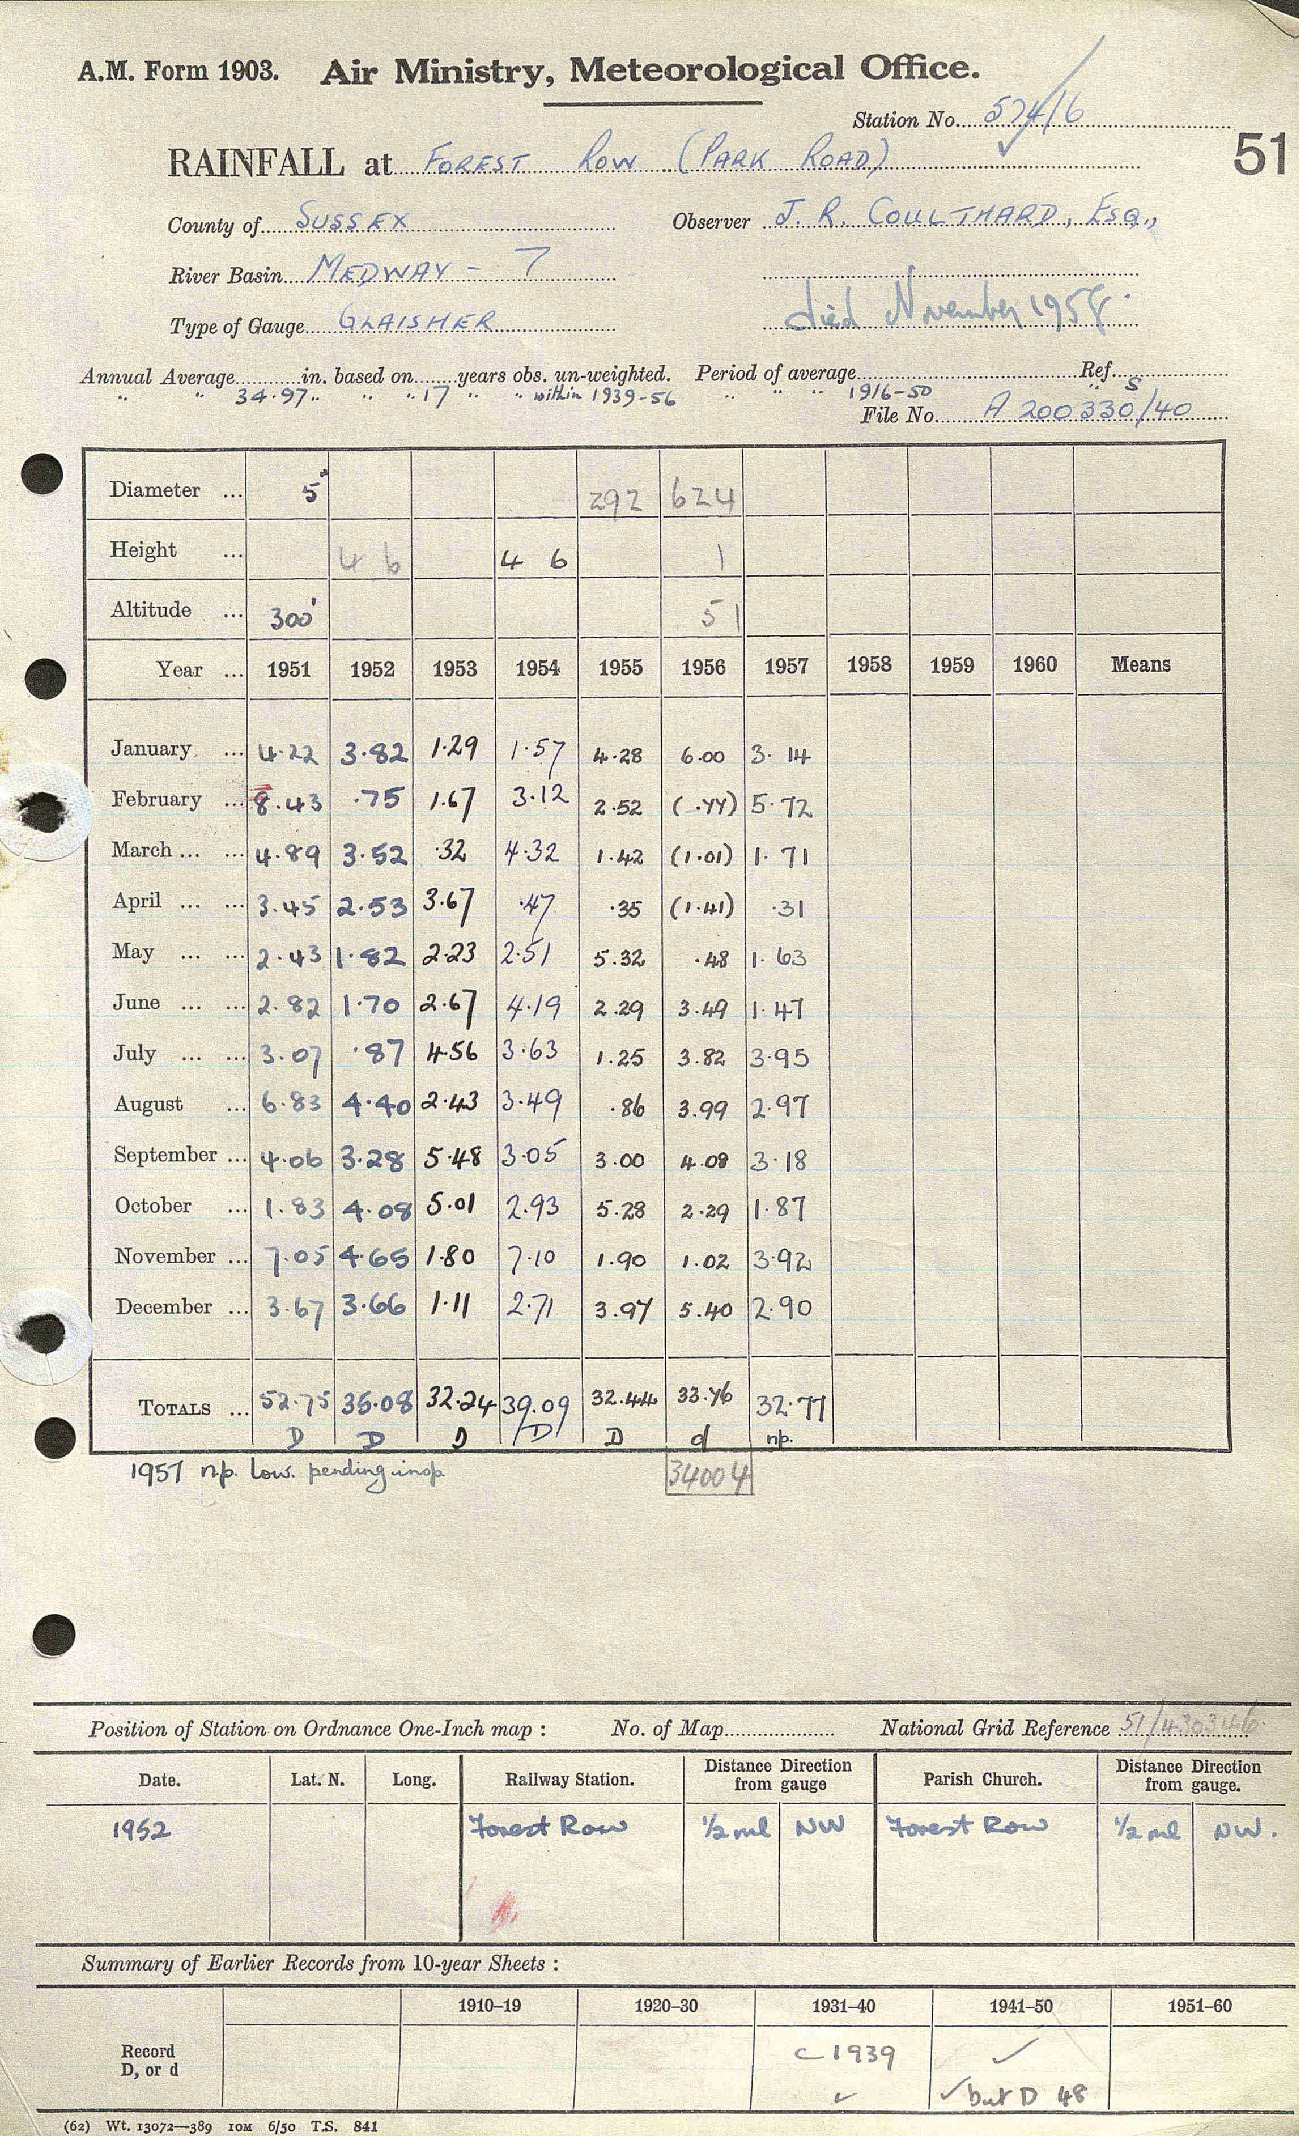 A.M. Form 1903. Air Ministry, Meteorological Office.
Station No. 574/6
51
RAINFALL at FOREST ROW (PARK ROAD)
County of SUSSEX Observer J. R. COULTHARD, ESQ.,
River Basin MEDWAY - 7
Type of Gauge GLAISHER died November 1958.
Annual Average in. based on years obs. un-weighted. Period of average Ref.
" " 34.97 " " " 17 " " within 1939-56 " " " 1916-50 " S
File No. A 200330/40
Diameter ... 5" 292 624
Height ... 4 6 4 6 1
Altitude ... 300' 51
Year ... 1951 1952 1953 1954 1955 1956 1957 1958 1959 1960 Means
January ... 4.22 3.82 1.29 1.57 4.28 6.00 3.14
February ... 8.43 .75 1.67 3.12 2.52 (.44) 5.72
March ... ... 4.89 3.52 .32 4.32 1.42 (1.01) 1.71
April ... ... 3.45 2.53 3.67 .47 .35 (1.41) .31
May ... ... 2.43 1.82 2.23 2.51 5.32 .48 1.63
June ... ... 2.82 1.70 2.67 4.19 2.29 3.49 1.47
July ... ... 3.07 .87 4.56 3.63 1.25 3.82 3.95
August ... 6.83 4.40 2.43 3.49 .86 3.99 2.97
September ... 4.06 3.28 5.48 3.05 3.00 4.09 3.18
October ... 1.83 4.08 5.01 2.93 5.28 2.29 1.87
November ... 7.05 4.65 1.80 7.10 1.90 1.02 3.92
December ... 3.67 3.66 1.11 2.71 3.97 5.40 2.90
TOTALS ... 52.75 35.08 32.24 39.09 32.44 33.46 32.77
D D D D D d np.
1957 n.p. low. pending insp. 34004
Position of Station on Ordnance One-Inch map : No. of Map National Grid Reference 51/430346
Date. Lat. N. Long. Railway Station. Distance Direction from gauge Parish Church. Distance Direction from gauge.
1952 Forest Row ½ ml NW Forest Row ½ ml NW.
Summary of Earlier Records from 10-year Sheets :
1910–19 1920–30 1931–40 1941–50 1951–60
Record D, or d c 1939 ✓
✓ ✓ but D 48
(62) Wt. 13072—389 10M 6/50 T.S. 841